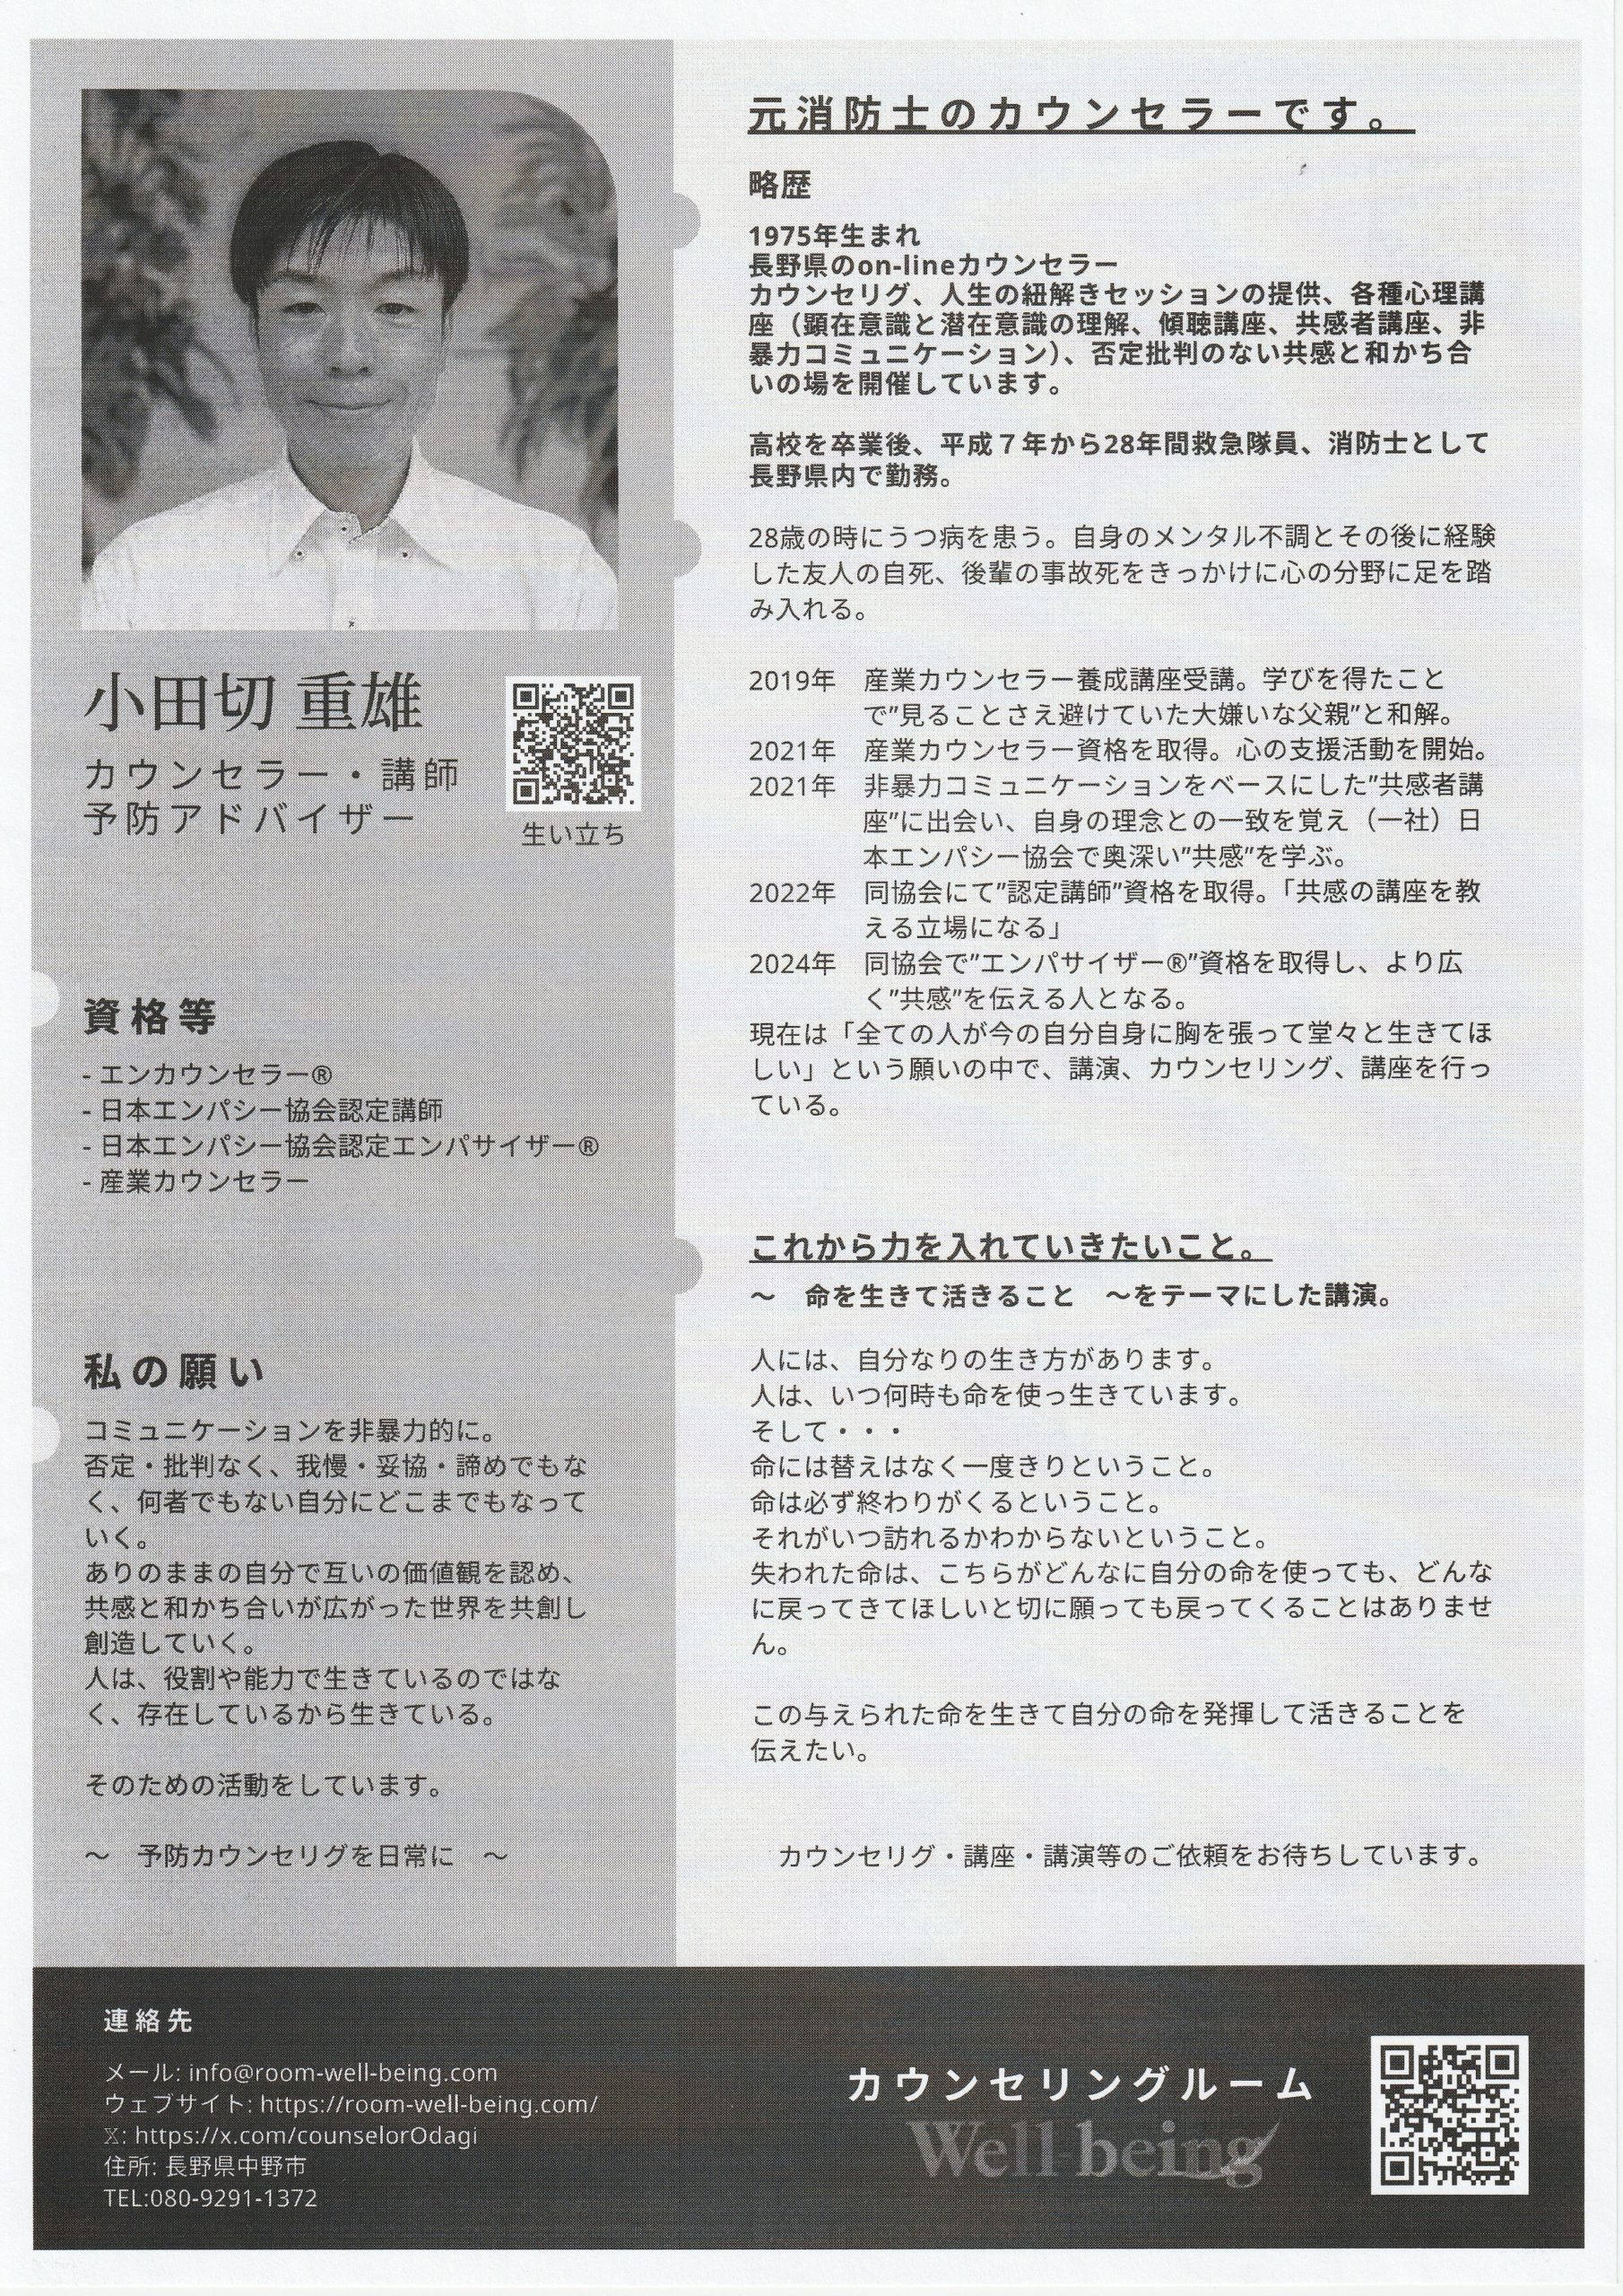 元消防士のカウンセラーです。
略歴
1975年生まれ
長野県のon-lineカウンセラー
カウンセリグ、人生の紐解きセッションの提供、各種心理講
座（顕在意識と潜在意識の理解、傾聴講座、共感者講座、非
暴力コミュニケーション）、否定批判のない共感と和かち合
いの場を開催しています。
高校を卒業後、平成７年から28年間救急隊員、消防士として
長野県内で勤務。
28歳の時にうつ病を患う。自身のメンタル不調とその後に経験
した友人の自死、後輩の事故死をきっかけに心の分野に足を踏
み入れる。
2019年　産業カウンセラー養成講座受講。学びを得たこと
で”見ることさえ避けていた大嫌いな父親”と和解。
2021年　産業カウンセラー資格を取得。心の支援活動を開始。
2021年　非暴力コミュニケーションをベースにした”共感者講
座”に出会い、自身の理念との一致を覚え（一社）日
本エンパシー協会で奥深い”共感”を学ぶ。
2022年　同協会にて”認定講師”資格を取得。「共感の講座を教
える立場になる」
2024年　同協会で”エンパサイザー®”資格を取得し、より広
く”共感”を伝える人となる。
現在は「全ての人が今の自分自身に胸を張って堂々と生きてほ
しい」という願いの中で、講演、カウンセリング、講座を行っ
ている。
これから力を入れていきたいこと。
～　命を生きて活きること　～をテーマにした講演。
人には、自分なりの生き方があります。
人は、いつ何時も命を使っ生きています。
そして・・・
命には替えはなく一度きりということ。
命は必ず終わりがくるということ。
それがいつ訪れるかわからないということ。
失われた命は、こちらがどんなに自分の命を使っても、どんな
に戻ってきてほしいと切に願っても戻ってくることはありませ
ん。
この与えられた命を生きて自分の命を発揮して活きることを
伝えたい。
カウンセリグ・講座・講演等のご依頼をお待ちしています。
小田切 重雄
カウンセラー・講師
予防アドバイザー
生い立ち
資格等
- エンカウンセラー®
- 日本エンパシー協会認定講師
- 日本エンパシー協会認定エンパサイザー®
- 産業カウンセラー
私の願い
コミュニケーションを非暴力的に。
否定・批判なく、我慢・妥協・諦めでもな
く、何者でもない自分にどこまでもなって
いく。
ありのままの自分で互いの価値観を認め、
共感と和かち合いが広がった世界を共創し
創造していく。
人は、役割や能力で生きているのではな
く、存在しているから生きている。
そのための活動をしています。
～　予防カウンセリグを日常に　～
連絡先
メール: info@room-well-being.com
ウェブサイト: https://room-well-being.com/
𝕏: https://x.com/counselorOdagi
住所: 長野県中野市
TEL:080-9291-1372
カウンセリングルーム
Well-being